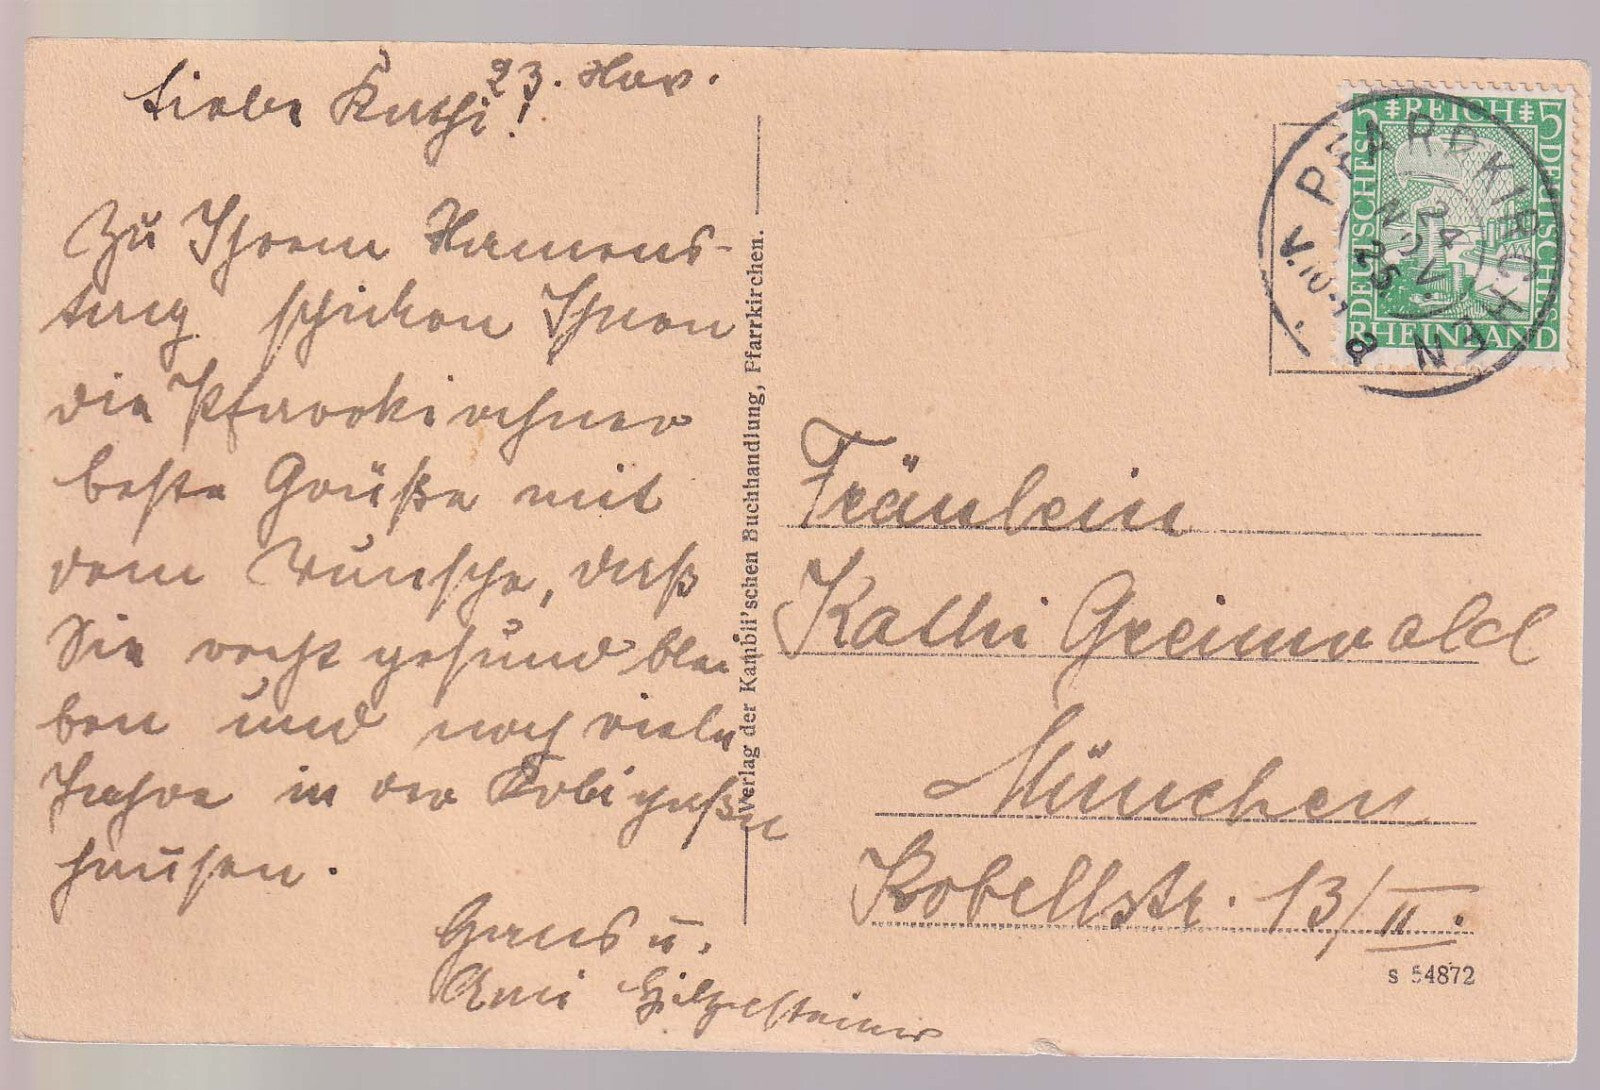 23. Nov.
Liebe Kathi!
Zu Ihrem Namens-
tag schicken Ihnen
die Pfarrkirchner
beste Grüße mit
dem Wunsche, daß
Sie recht gesund blei
ben und noch viele
Jahre in der
hausen.
Hans u.
Anni
Verlag der Kambli'schen Buchhandlung, Pfarrkirchen.
5 REICH 5
DEUTSCHES
DEUTSCHES
RHEINLAND
PFARRKIRCHEN
24
NOV.
25
V.10-
Fräulein
Kathi Greimwald
München
Kobellstr. 13/II.
S 54872